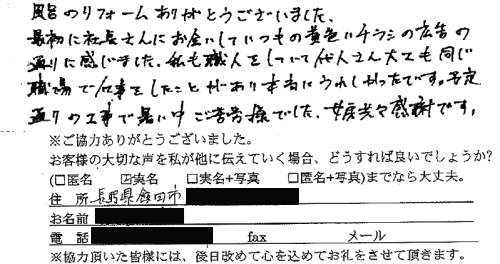 風呂のリフォームありがとうございました、
最初に社長さんにお会いしていつもの黄色いチラシの広告の
通りに感じました。私も職人をしていて代人さん大工も同じ
職場で仕事をしたことがあり本当にうれしかったです。予定
通りの工事で暑い中ご苦労様でした、感謝です。
※ご協力ありがとうございました。
お客様の大切な声を私が他に伝えていく場合、どうすれば良いでしょうか?
(□匿名 ☑実名 □実名+写真 □匿名+写真)までなら大丈夫。
住 所 長野県飯田市
お名前
電 話 fax メール
※協力頂いた皆様には、後日改めて心を込めてお礼をさせて頂きます。